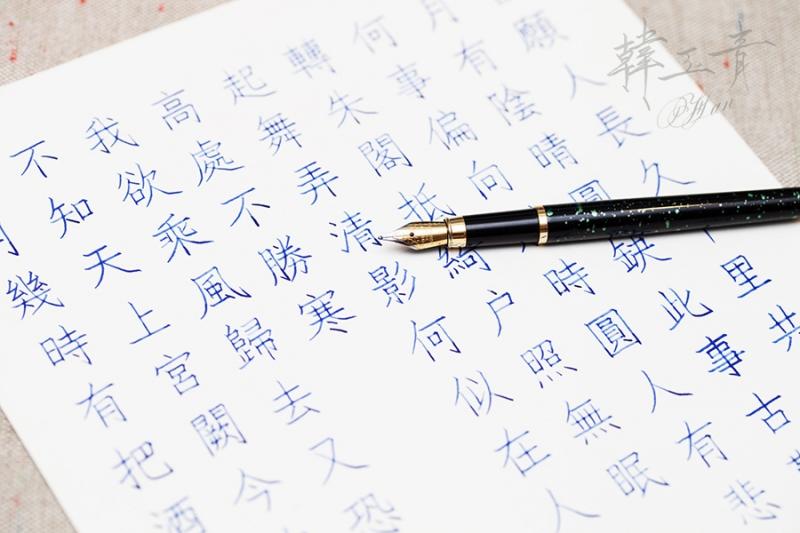 月幾時有把酒
不知天上宮闕今
我欲乘風歸去又恐
高處不勝寒
起舞弄清影何似在人
轉朱閣抵綺户照無眠
何事偏向時圓人有悲
月有陰晴圓缺此事古
願人長久里共
韓玉青